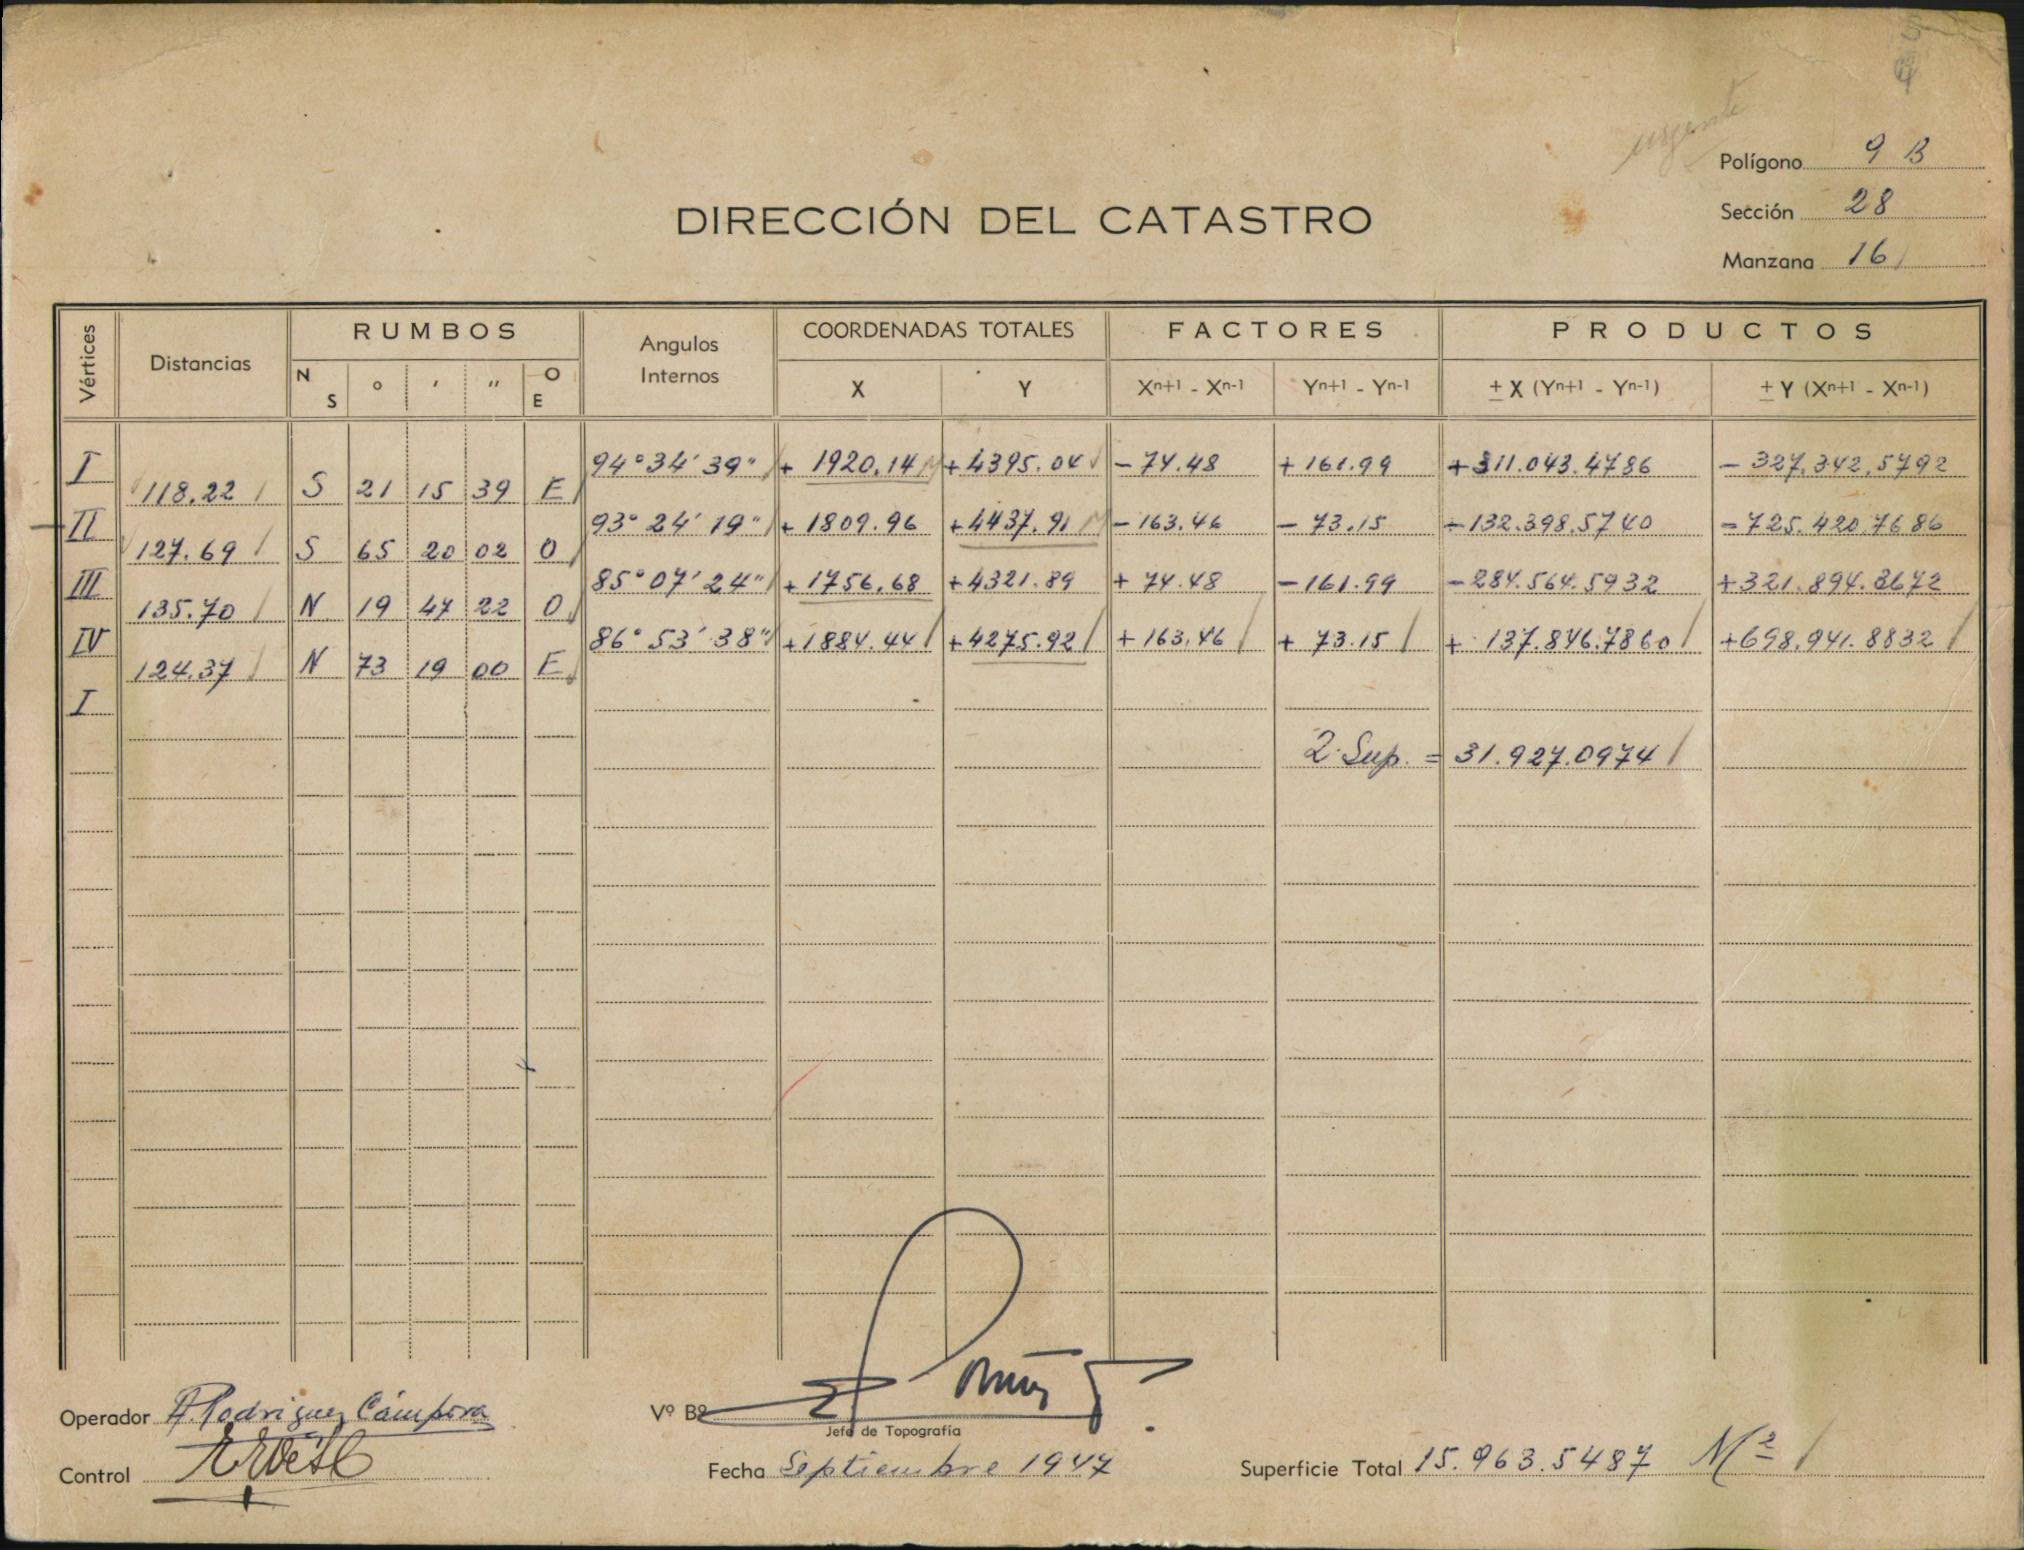 urgente
Polígono 9 B
Sección 28
Manzana 16
DIRECCIÓN DEL CATASTRO
Vértices Distancias RUMBOS Angulos Internos COORDENADAS TOTALES FACTORES PRODUCTOS
N S ° ′ ″ O E X Y Xn+1 - Xn-1 Yn+1 - Yn-1 ± X (Yn+1 - Yn-1) ± Y (Xn+1 - Xn-1)
I 94° 34' 39" + 1920.14 +4395.04 - 74.48 + 161.99 +311.043.4786 - 327.342.5792
118.22 S 21 15 39 E
II 93° 24' 19" + 1809.96 +4437.91 - 163.46 - 73.15 -132.398.5740 -725.420.7686
127.69 S 65 20 02 O
III 85° 07' 24" + 1756.68 +4321.89 + 74.48 -161.99 -284.564.5932 +321.894.3672
135.70 N 19 47 22 O
IV 86° 53' 38" +1884.44 +4275.92 + 163.46 + 73.15 + 137.846.7860 +698.941.8832
124.37 N 73 19 00 E
I
2 Sup. = 31.927.0974
Operador A. Rodriguez Cámpora
Vº Bº
Jefe de Topografía
Control
Fecha Septiembre 1947
Superficie Total 15.963.5487 M²